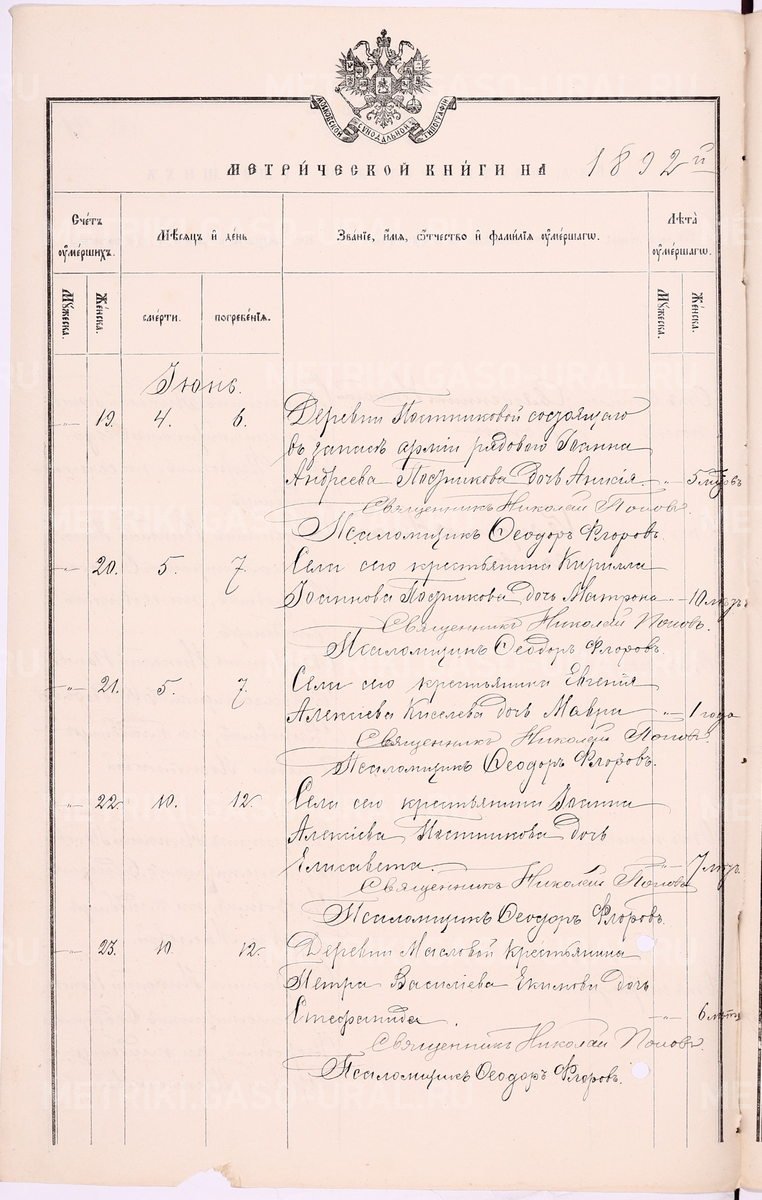 МОСКОВСКОЙ СѴНОДАЛЬНОЙ ТИПОГРАФІИ
МЕТРИ́ЧЕСКОЙ КНИ́ГИ НА 1892й
Сче́тъ ᲂу҆ме́ршихъ.
Мѣ́сѧцъ и҆ де́нь
Зва́нїе, и҆́мѧ, ѻ҆́тчество и҆ фами́лїѧ ᲂу҆ме́ршагѡ.
Лѣ́та ᲂу҆ме́ршагѡ.
Мꙋ́жеска.
Же́нска.
сме́рти.
погребе́нїѧ.
Мꙋ́жеска.
Же́нска.
Іюнь.
-"- 19. 4. 6. Деревни Постниковой состоящаго
въ запасѣ арміи рядоваго Іоанна
Андреева Постникова дочь Анисія. -"-
Священникъ Николай Поповъ.
Псаломщикъ Ѳеодоръ Флоровъ.
-"- 20. 5. 7. Села сего крестьянина Кирилла
Іоаннова Постникова дочь Матрона -"- 10
Священникъ Николай Поповъ.
Псаломщикъ Ѳеодоръ Флоровъ.
-"- 21. 5. 7. Села сего крестьянина Евгенія
Алексіева Киселева дочь Мавра -"- 1 года
Священникъ Николай Поповъ.
Псаломщикъ Ѳеодоръ Флоровъ.
-"- 22. 10. 12. Села сего крестьянина Іоанна
Алексіева Постникова дочь
Елисавета. -"- 7 лѣтъ
Священникъ Николай Поповъ
Псаломщикъ Ѳеодоръ Флоровъ.
-"- 23. 10 12. Деревни Масловой крестьянина
Петра Василіева Екимова дочь
Стефанида. -"- 6
Священникъ Николай Поповъ.
Псаломщикъ Ѳеодоръ Флоровъ.
METRIKI.GASO-URAL.RU